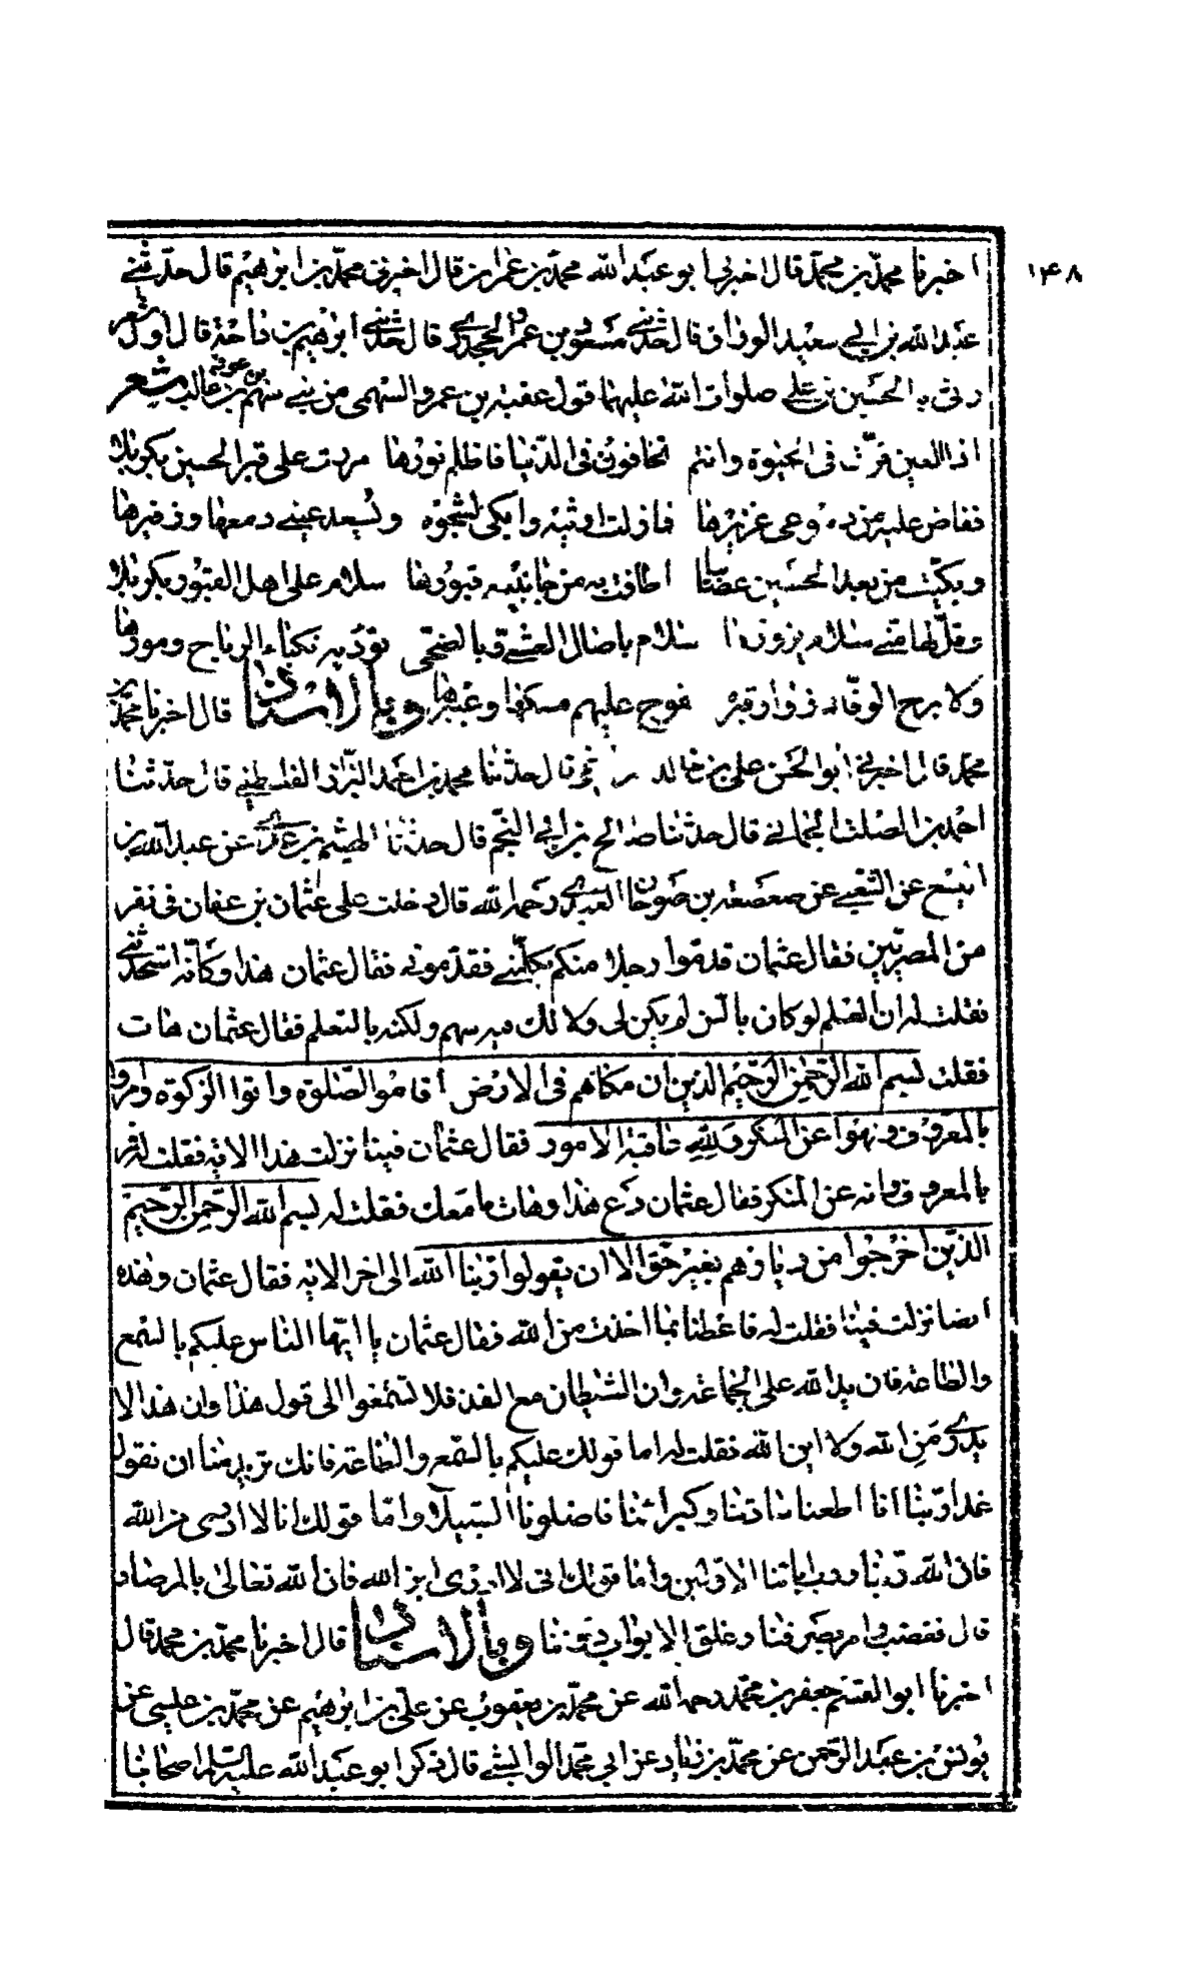 ١۴٨
اخبرنا محمد بن محمد قال اخبرنی ابو عبد الله محمد بن عمران قال اخبرنی محمد بن ابرهیم قال حدثنی
عبد الله بن ابی سعید الوراق قال حدثنی مسعود بن عمرو الجحدری قال حدثنی ابرهیم بن داحة قال اول شعر
رثی به الحسین بن علی صلوات الله علیهما قول عقبة بن عمرو السهمی من بنی سهم بن عوف بن غالب شعر
اذا العین قرت فی الحیوة وانتم تخافون فی الدنیا فاظلم نورها مررت علی قبر الحسین بکربلا
ففاض علیه من دموعی غزیرها فما زلت ارثیه وابکی لشجوه ویسعد عینی دمعها وزفیرها
وبکیت من بعد الحسین عصائبا اطافت به من جانبیه قبورها سلام علی اهل القبور بکربلا
وقل لها منی سلام یزورها سلام باصال العشی وبالضحی تؤدیه نکباء الریاح ومورها
ولا برح الوفاد زوار قبره یفوح علیهم مسکها وعبیرها وبالاسناد قال اخبرنا محمد بن
محمد قال اخبرنی ابو الحسن علی بن خالد قال حدثنا محمد بن احمد البزاز الفلسطینی قال حدثنا
احمد بن الصلت الحمانی قال حدثنا صالح بن ابی النجم قال حدثنا الهیثم بن عدی عن عبد الله بن
الیسع عن الشعبی عن صعصعة بن صوحان العبدی رحمه الله قال دخلت علی عثمان بن عفان فی نفر
من المصریین فقال عثمان قدموا رجلا منکم یکلمنی فقدمونی فقال عثمان هذا وکانه استحدثنی
فقلت له ان العلم لو کان بالسن لم یکن لی ولا لک فیه سهم ولکنه بالتعلم فقال عثمان هات
فقلت بسم الله الرحمن الرحیم الذین ان مکناهم فی الارض اقاموا الصلوة واتوا الزکوة وامروا
بالمعروف ونهوا عن المنکر ولله عاقبة الامور فقال عثمان فینا نزلت هذا الایة فقلت له فمر
بالمعروف وانه عن المنکر فقال عثمان دع هذا وهات ما معک فقلت له بسم الله الرحمن الرحیم
الذین اخرجوا من دیارهم بغیر حق الا ان یقولوا ربنا الله الی اخر الایة فقال عثمان وهذه
ایضا نزلت فینا فقلت له فاعطنا بما اخذت من الله فقال عثمان یا ایها الناس علیکم بالسمع
والطاعة فان ید الله علی الجماعة وان الشیطان مع الفذ فلا تستمعوا الی قول هذا وان هذا لا
یدری من الله ولا این الله فقلت له اما قولک علیکم بالسمع والطاعة فانک ترید منا ان نقول
غدا ربنا انا اطعنا سادتنا وکبرائنا فاضلونا السبیلا واما قولک انا لا ادری من الله
فان الله ربنا ورب ابائنا الاولین واما قولک انی لا ادری این الله فان الله تعالی بالمرصاد
قال فغضب وامر بصرفنا وغلق الابواب دوننا وبالاسناد قال اخبرنا محمد بن محمد قال
اخبرنا ابو القسم جعفر بن محمد رحمه الله عن محمد بن یعقوب عن علی بن ابرهیم عن محمد بن عیسی عن
یونس بن عبد الرحمن عن محمد بن زیاد عن ابی محمد الوابشی قال ذکر ابو عبد الله علیه السلم اصحابنا